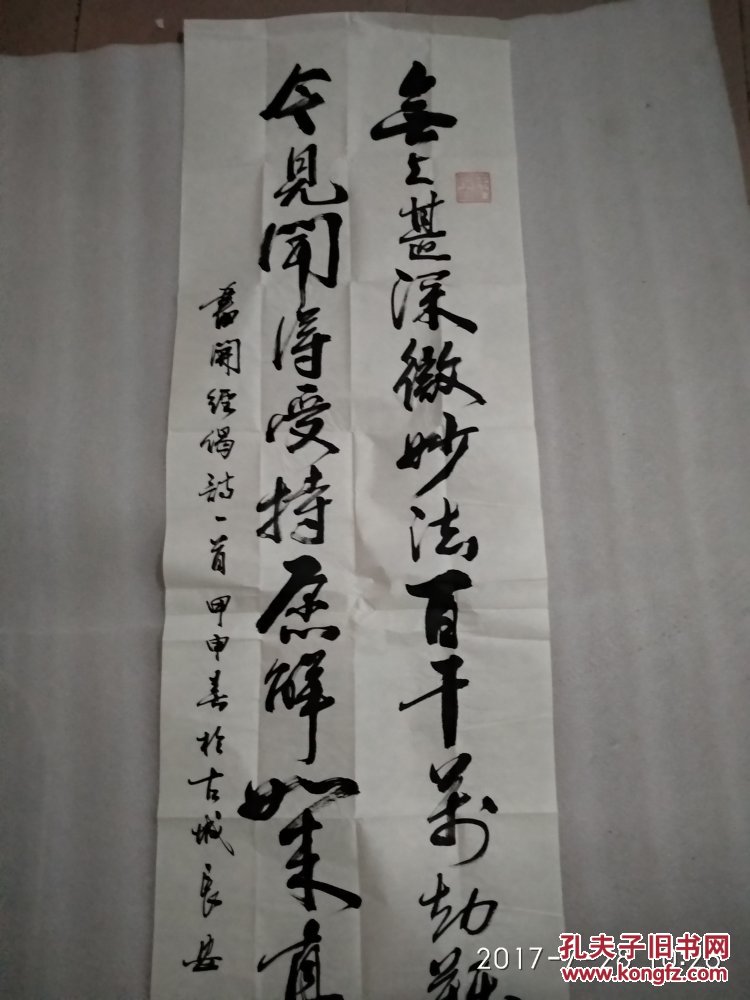 無上甚深微妙法百千萬劫難
今見聞得受持愿解如来真
書開經偈詩一首甲申春於古城長安
2017-7-26 10:26
孔夫子旧书网
www.kongfz.com